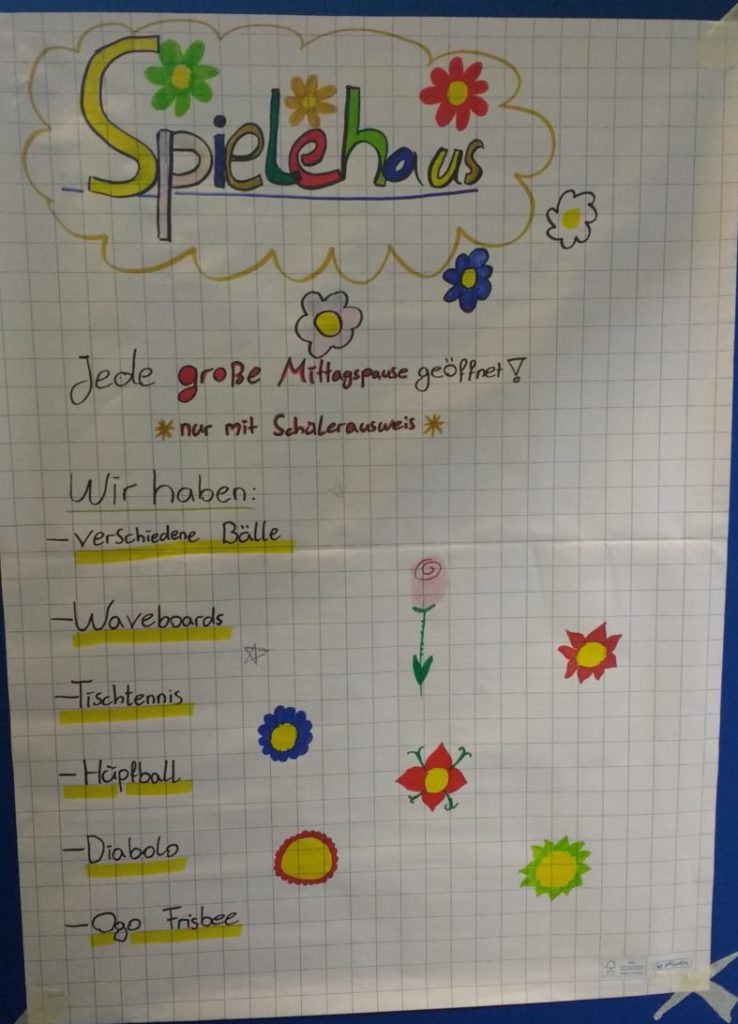 Spielehaus
Jede große Mittagspause geöffnet!
*nur mit Schülerausweis*
Wir haben:
- verschiedene Bälle
- Waveboards
- Tischtennis
- Hüpfball
- Diabolo
- Ogo Frisbee